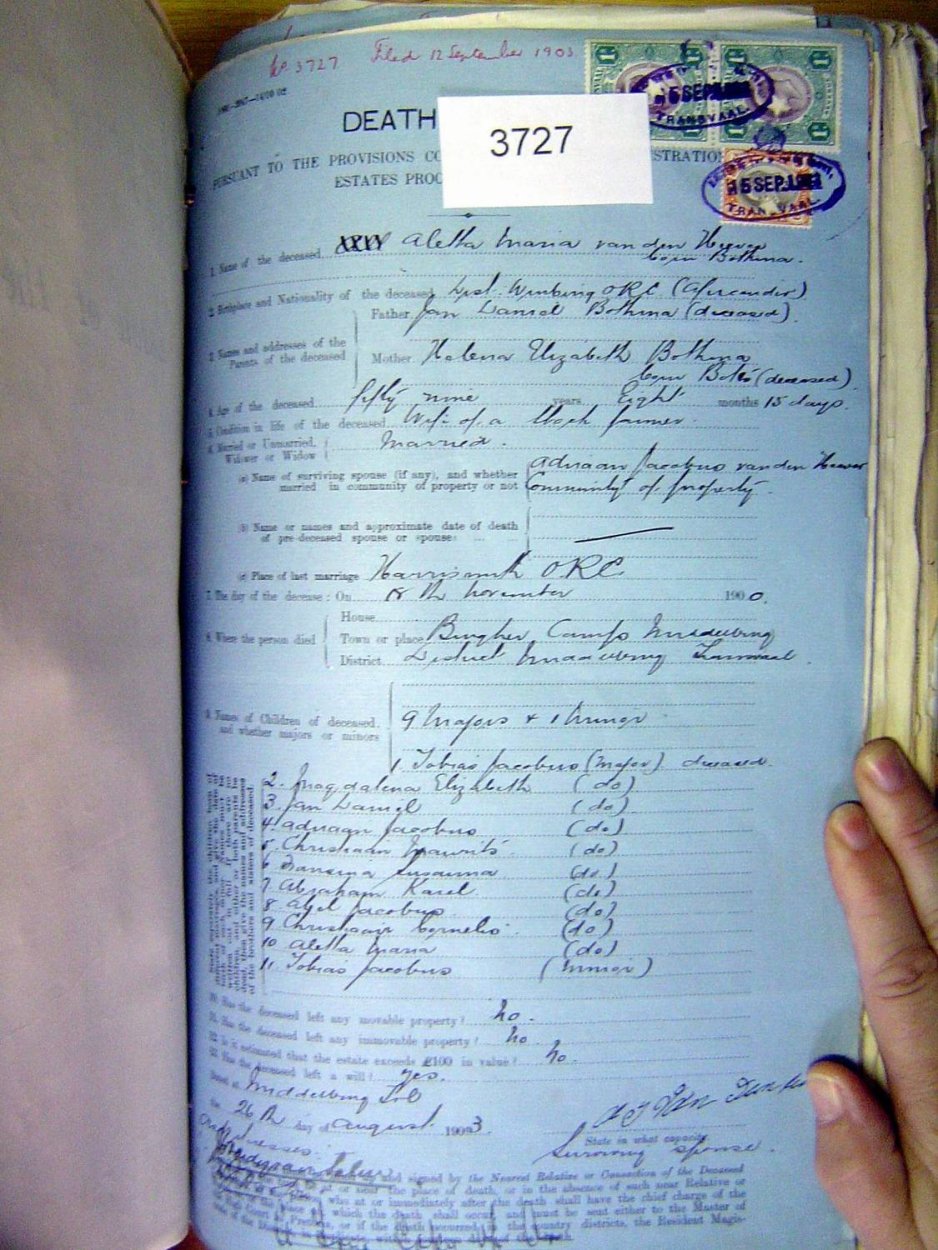 No 3727 Filed 12 September 1903
DEATH
3727
PURSUANT TO THE PROVISIONS CO STRATION
ESTATES PROC
15 SEP.
TRANSVAAL
15 SEP.
TRANSVAAL
1. Name of the deceased Aletta Maria van den Heever
born Bothma.
2. Birthplace and Nationality of the deceased Dist. Winburg ORC (Africander)
3. Names and addresses of the Parents of the deceased
Father Jan Daniel Bothma (deceased).
Mother Helena Elizabeth Bothma
born Botes (deceased)
4. Age of the deceased fifty nine years Eight months 15 days.
5. Condition in life of the deceased Wife of a Stock farmer.
6. Married or Unmarried, Widower or Widow Married.
(a) Name of surviving spouse (if any), and whether married in community of property or not
Adriaan Jacobus van den Heever
Community of property.
(b) Name or names and approximate date of death of pre-deceased spouse or spouses ...
(c) Place of last marriage Harrismith ORC
7. The day of the decease: On 18th November 1900.
8. Where the person died
House
Town or place Burgher Camp Middelburg
District District Middelburg Transvaal.
9. Names of Children of deceased, and whether majors or minors
9 Majors + 1 Minor
1. Tobias Jacobus (Major) deceased.
2. Magdalena Elizabeth (do)
3. Jan Daniel (do)
4. Adriaan Jacobus (do)
5. Christiaan Maurits (do)
6. Susanna (do)
7. Abraham Karel (do)
8. Abel Jacobus (do)
9. Christiaan Cornelis (do)
10 Aletta Maria (do)
11. Tobias Jacobus (Minor)
10. Has the deceased left any movable property? No.
11. Has the deceased left any immovable property? No.
12. Is it estimated that the estate exceeds £100 in value? No.
13. Has the deceased left a will? Yes.
Dated at Middelburg
26th day of August 1903
State in what capacity.
Surviving spouse.
signed by the Nearest Relative or Connection of the Deceased
at or near the place of death, or in the absence of such near Relative or
who at or immediately after the death shall have the chief charge of the
which the death shall occur, and must be sent either to the Master of
Pretoria, or if the death occurred in the country districts, the Resident Magis-